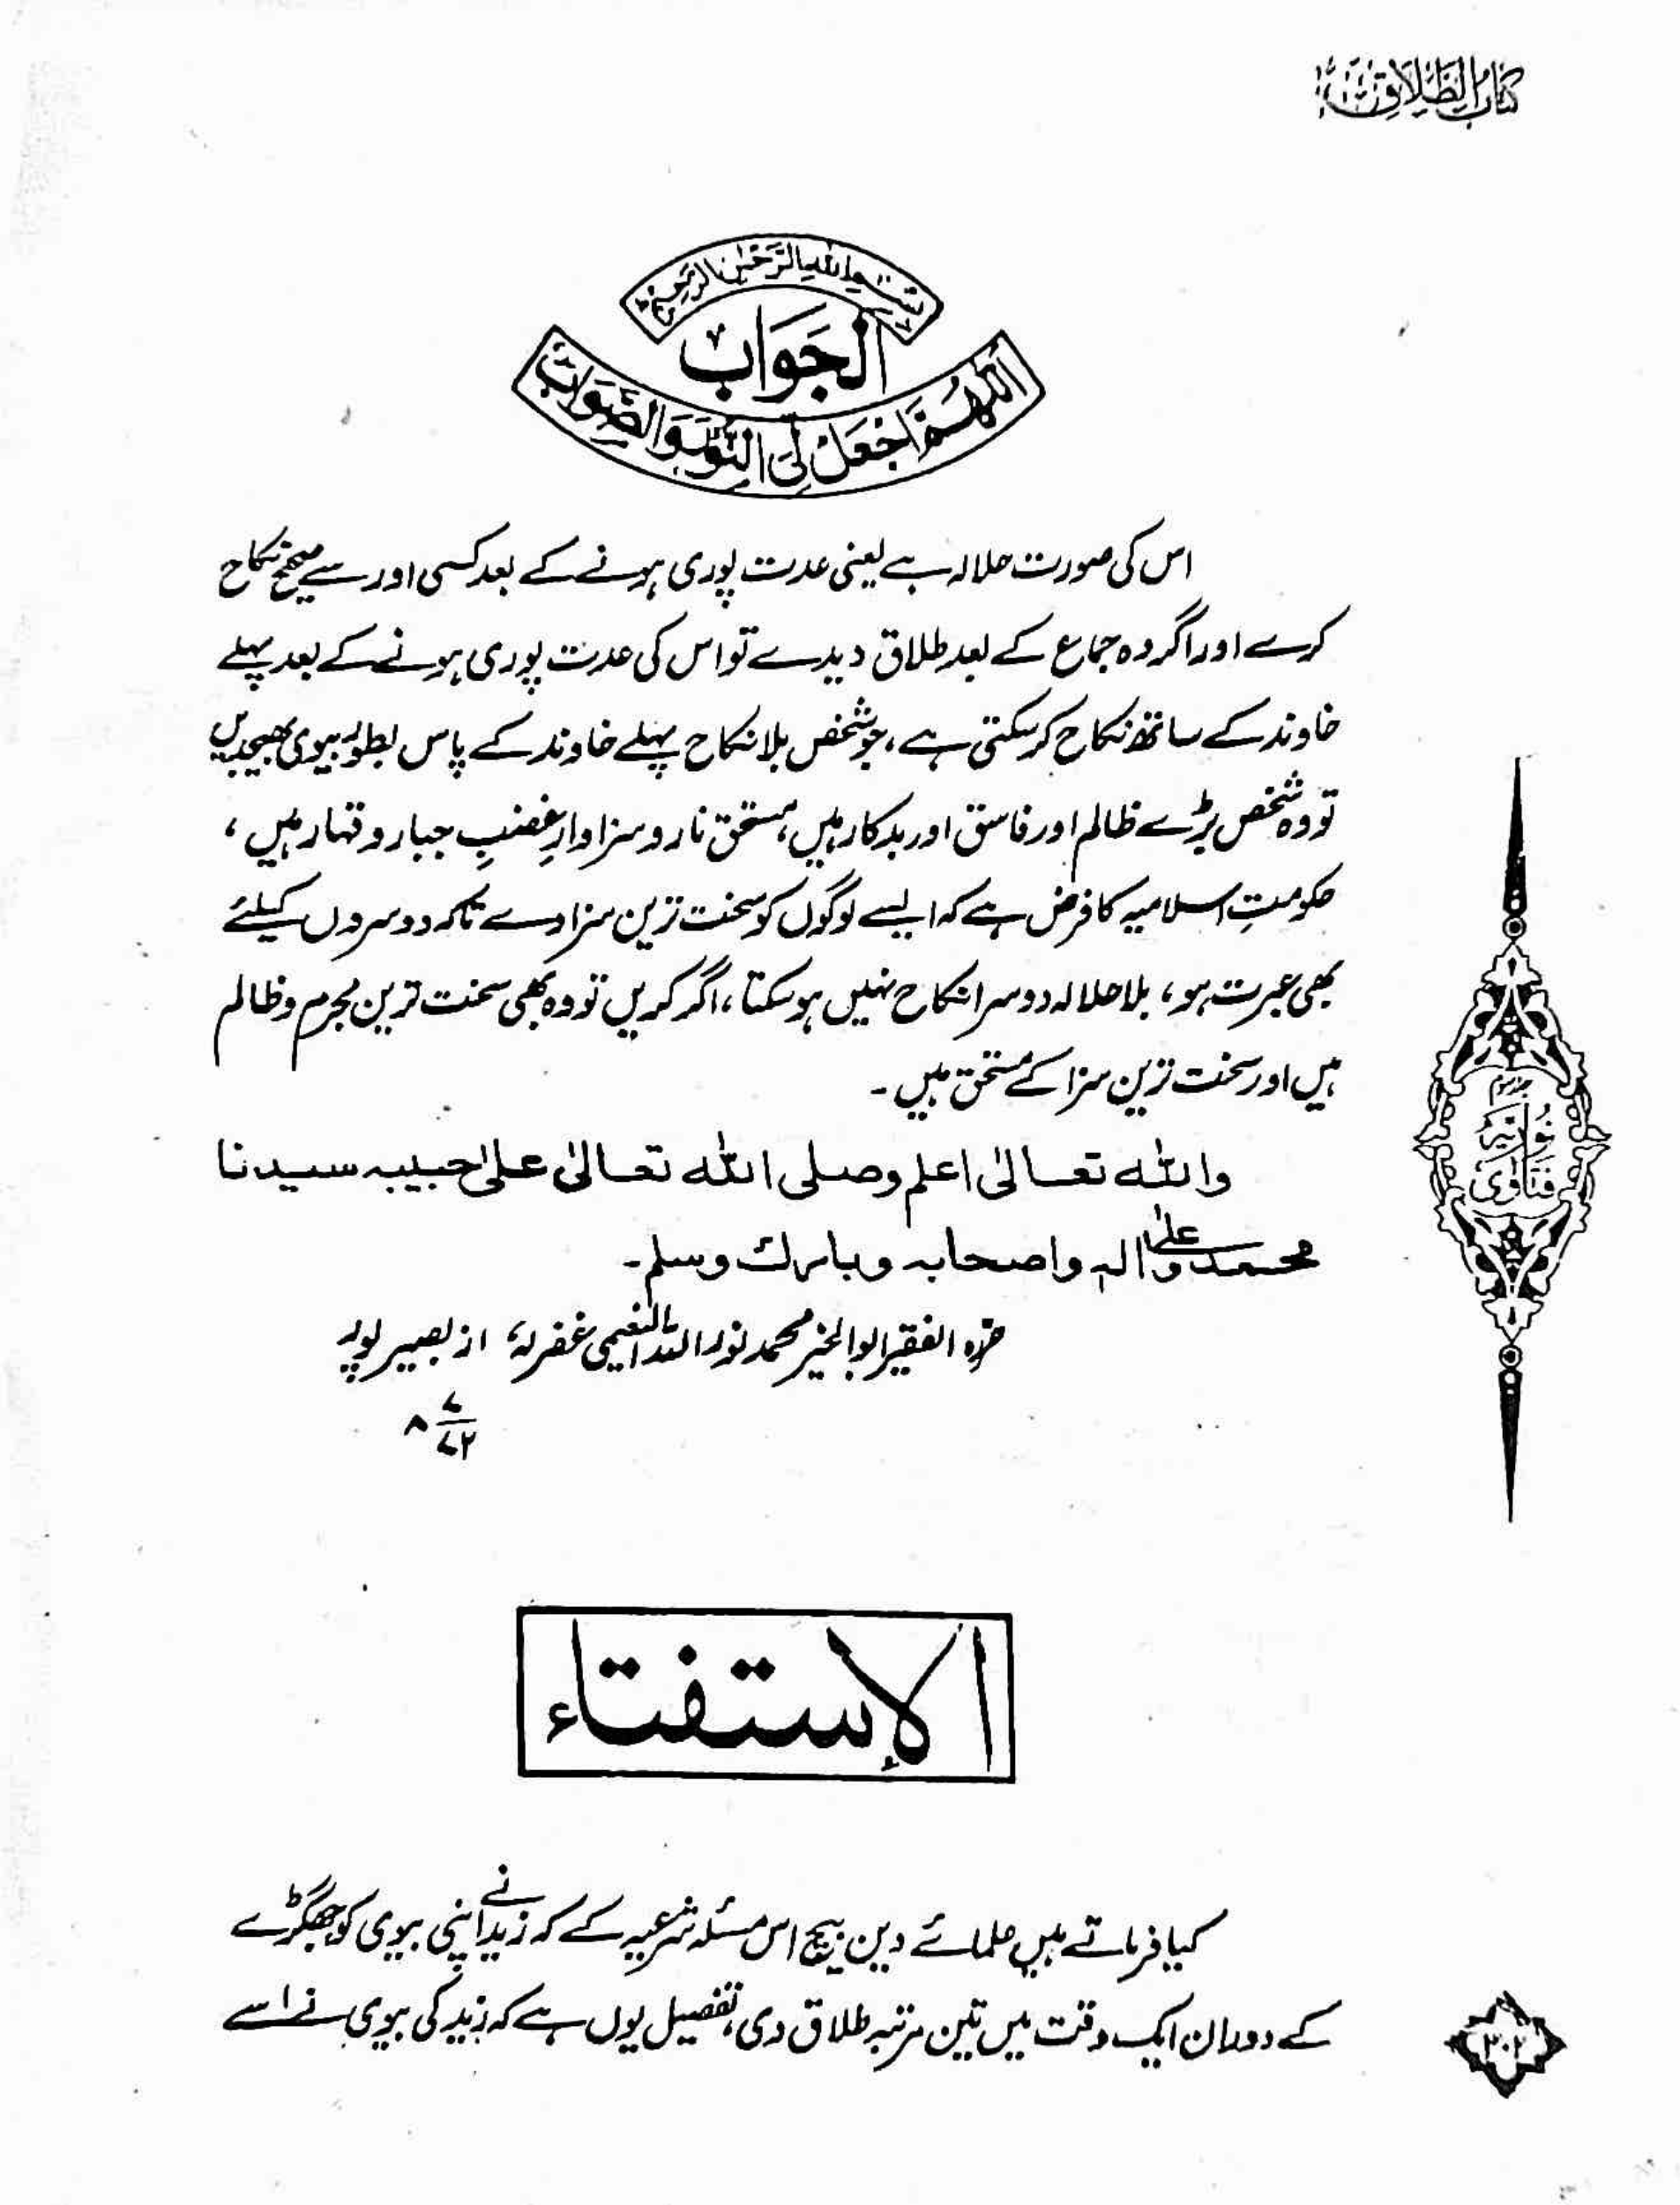 كتاب الطلاق
بسم الله الرحمن الرحيم
الجواب
اللهم اجعل لی النور والصواب
اس کی صورت حلالہ ہے یعنی عدت پوری ہونے کے بعد کسی اور سے صحیح نکاح
کرے اور اگر وہ جماع کے بعد طلاق دیدے تو اس کی عدت پوری ہونے کے بعد پہلے
خاوند کے ساتھ نکاح کر سکتی ہے، جو شخص بلا نکاح پہلے خاوند کے پاس بطور بیوی بھیجدیں
تو وہ شخص بڑے ظالم اور فاسق اور بدکار ہیں، مستحق نار و سزاوارِ غضبِ جبار و قہار ہیں،
حکومتِ اسلامیہ کا فرض ہے کہ ایسے لوگوں کو سخت ترین سزا دے تاکہ دوسروں کیلئے
بھی عبرت ہو، بلا حلالہ دوسرا نکاح نہیں ہو سکتا، اگر کریں تو وہ بھی سخت ترین مجرم و ظالم
ہیں اور سخت ترین سزا کے مستحق ہیں۔
والله تعالیٰ اعلم وصلی الله تعالیٰ علیٰ حبیبہ سیدنا
محمد وعلیٰ اٰلہٖ واصحابہ وبارك وسلم۔
حررہ الفقیر ابوالخیر محمد نور اللہ النعیمی غفرلہٗ، از بصیر پور
۸ ۷/۷۲
فتاویٰ نوریہ
الاستفتاء
کیا فرماتے ہیں علمائے دین بیچ اس مسئلہ شرعیہ کے کہ زید نے اپنی بیوی کو جھگڑے
کے دوران ایک وقت میں تین مرتبہ طلاق دی، تفصیل یوں ہے کہ زید کی بیوی نے اسے
۳۰۲